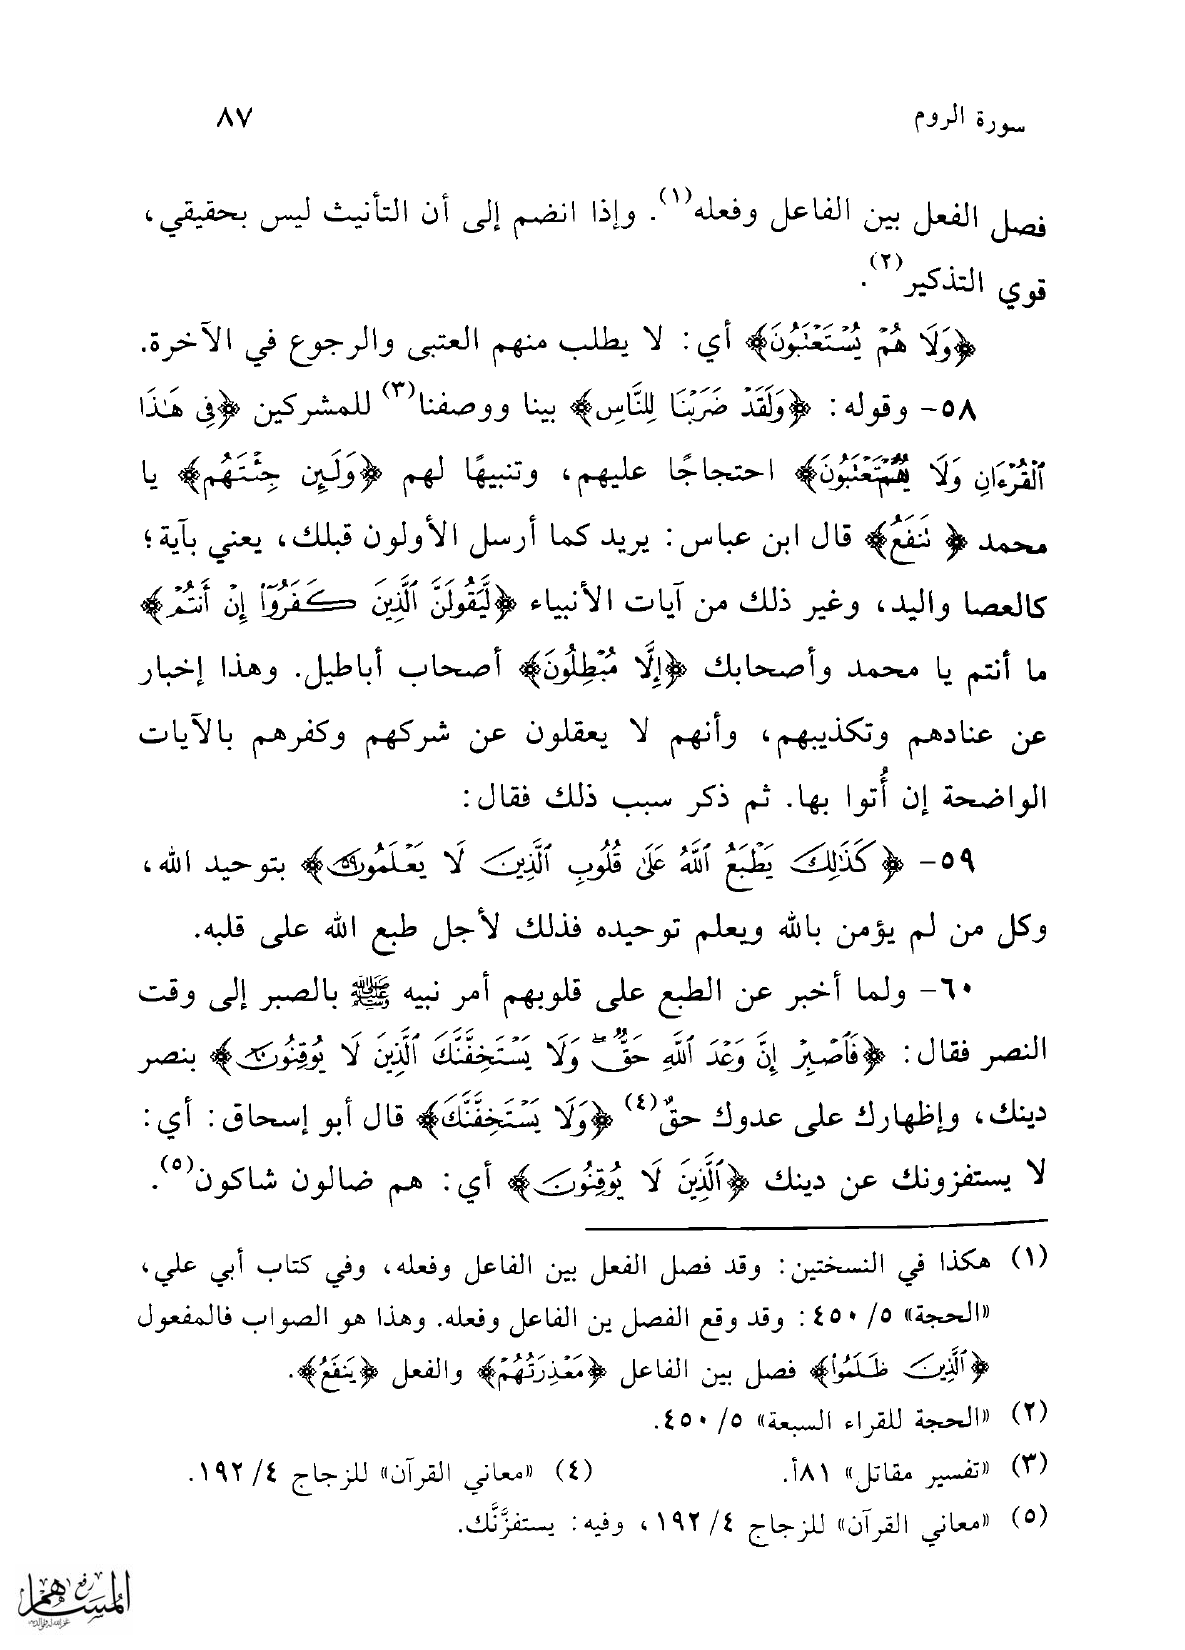 سورة الروم ٨٧
فصل الفعل بين الفاعل وفعله(١). وإذا انضم إلى أن التأنيث ليس بحقيقي،
قوي التذكير(٢).
﴿وَلَا هُمْ يُسْتَعْتَبُونَ﴾ أي: لا يطلب منهم العتبى والرجوع في الآخرة.
٥٨- وقوله: ﴿وَلَقَدْ ضَرَبْنَا لِلنَّاسِ﴾ بينا ووصفنا(٣) للمشركين ﴿فِي هَٰذَا
ٱلْقُرْءَانِ وَلَا ﴾ احتجاجًا عليهم، وتنبيهًا لهم ﴿وَلَئِن جِئْتَهُم﴾ يا
محمد ﴿ نَنفَعُ﴾ قال ابن عباس: يريد كما أرسل الأولون قبلك، يعني بآية؛
كالعصا واليد، وغير ذلك من آيات الأنبياء ﴿لَّيَقُولَنَّ ٱلَّذِينَ كَفَرُوٓا۟ إِنْ أَنتُمْ﴾
ما أنتم يا محمد وأصحابك ﴿إِلَّا مُبْطِلُونَ﴾ أصحاب أباطيل. وهذا إخبار
عن عنادهم وتكذيبهم، وأنهم لا يعقلون عن شركهم وكفرهم بالآيات
الواضحة إن أُتوا بها. ثم ذكر سبب ذلك فقال:
٥٩- ﴿كَذَٰلِكَ يَطْبَعُ ٱللَّهُ عَلَىٰ قُلُوبِ ٱلَّذِينَ لَا يَعْلَمُونَ ٥٩﴾ بتوحيد الله،
وكل من لم يؤمن بالله ويعلم توحيده فذلك لأجل طبع الله على قلبه.
٦٠- ولما أخبر عن الطبع على قلوبهم أمر نبيه ﷺ بالصبر إلى وقت
النصر فقال: ﴿فَٱصْبِرْ إِنَّ وَعْدَ ٱللَّهِ حَقٌّ ۖ وَلَا يَسْتَخِفَّنَّكَ ٱلَّذِينَ لَا يُوقِنُونَ ٦٠﴾ بنصر
دينك، وإظهارك على عدوك حقٌ(٤) ﴿وَلَا يَسْتَخِفَّنَّكَ﴾ قال أبو إسحاق: أي:
لا يستفزونك عن دينك ﴿ٱلَّذِينَ لَا يُوقِنُونَ﴾ أي: هم ضالون شاكون(٥).
(١) هكذا في النسختين: وقد فصل الفعل بين الفاعل وفعله، وفي كتاب أبي علي،
«الحجة» ٥/ ٤٥٠: وقد وقع الفصل ين الفاعل وفعله. وهذا هو الصواب فالمفعول
﴿ٱلَّذِينَ ظَلَمُوا۟﴾ فصل بين الفاعل ﴿مَعْذِرَتُهُمْ﴾ والفعل ﴿يَنفَعُ﴾.
(٢) «الحجة للقراء السبعة» ٥/ ٤٥٠.
(٣) «تفسير مقاتل» ٨١أ. (٤) «معاني القرآن» للزجاج ٤/ ١٩٢.
(٥) «معاني القرآن» للزجاج ٤/ ١٩٢، وفيه: يستفزَّنَّك.